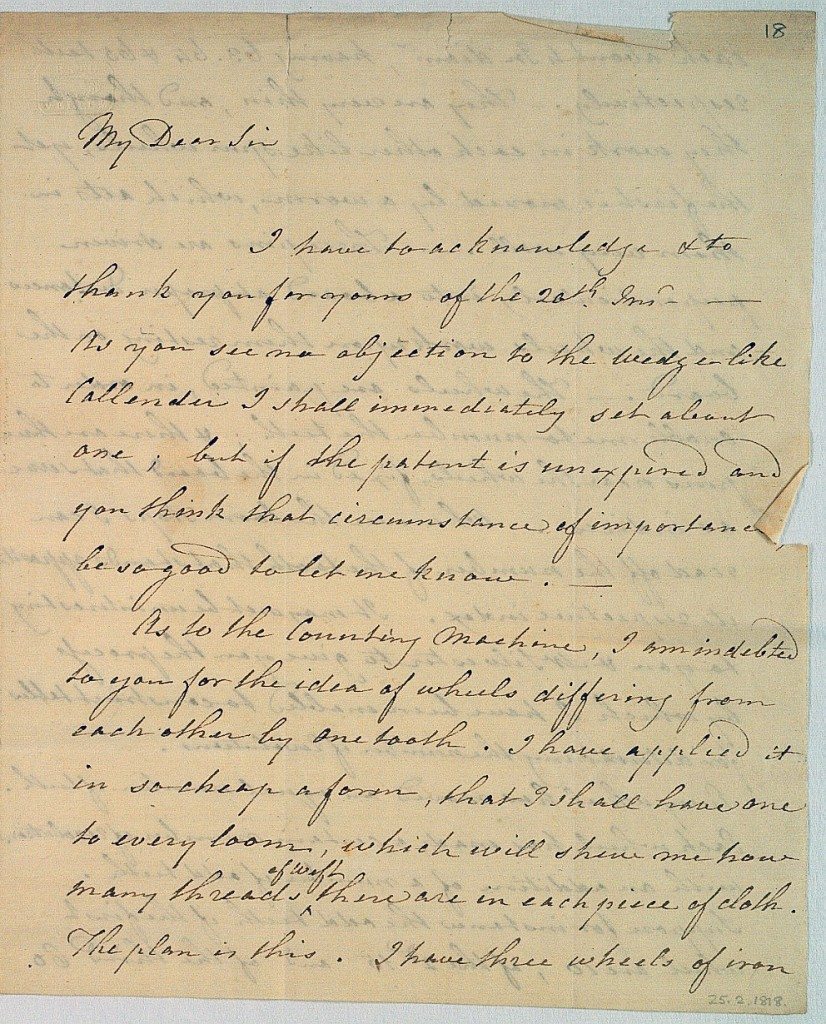 18
My Dear Sir
I have to acknowledge & to
thank you for yours of the 20th. Inst —
As you see no objection to the wedge-like
Callender I shall immediately set about
one; but if the patent is unexpired and
you think that circumstance of importance
be so good to let me know. —
As to the Counting Machine, I am indebted
to you for the idea of wheels differing from
each other by one tooth. I have applied it
in so cheap a form, that I shall have one
to every loom, which will shew me how
of weft
many threads ^ there are in each piece of cloth.
The plan is this. I have three wheels of iron
25.2.1818.